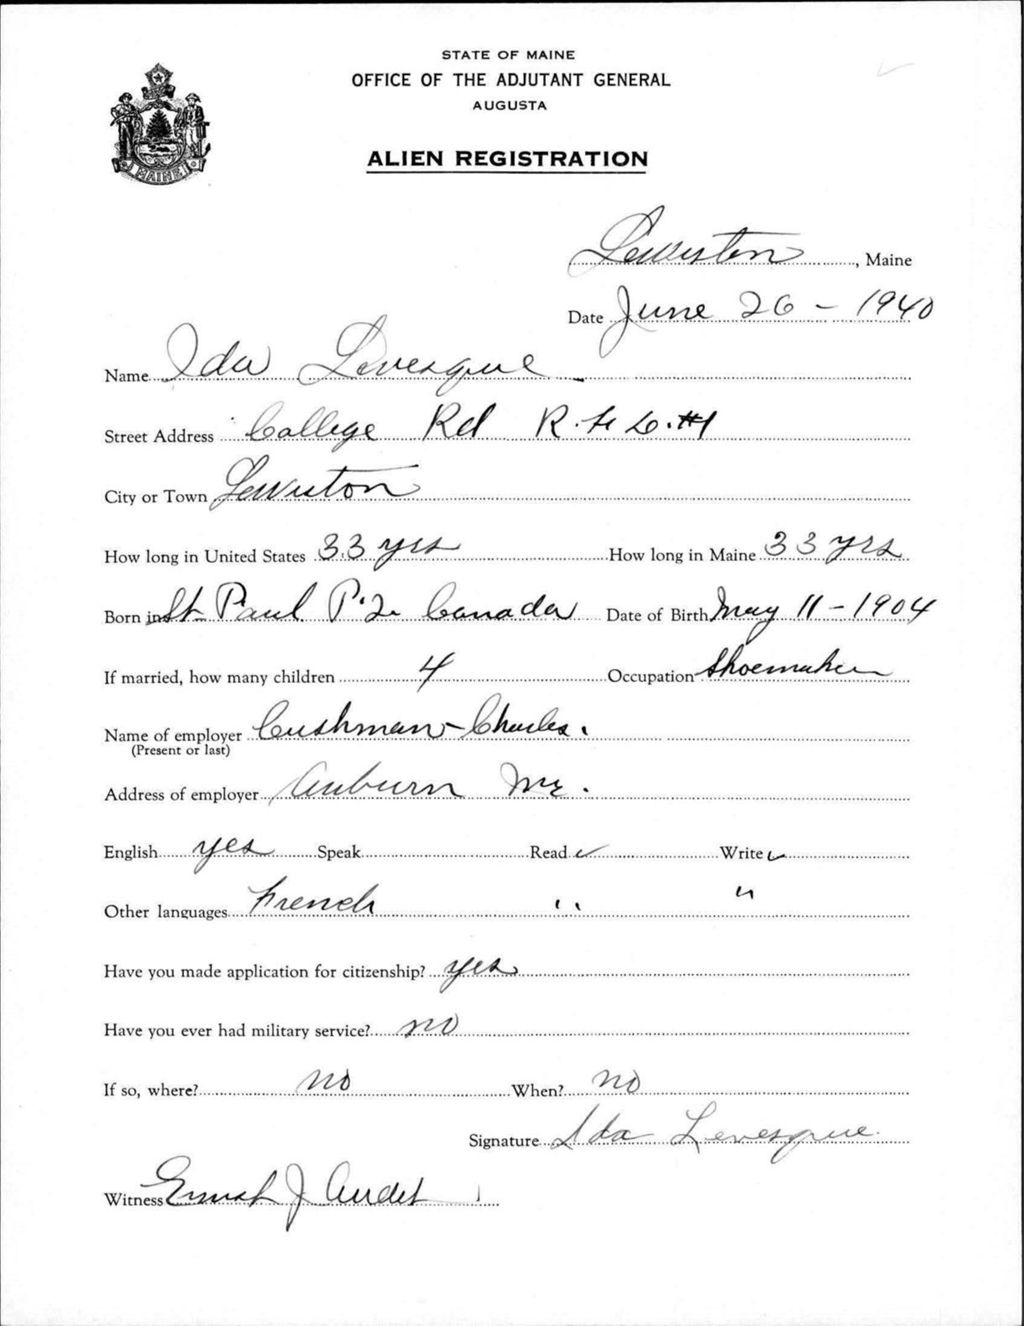 STATE OF MAINE
OFFICE OF THE ADJUTANT GENERAL
AUGUSTA
ALIEN REGISTRATION
MAINE
Lewiston, Maine
Date June 26 - 1940
Name Ida Levesque
Street Address College Rd R.F.D. #1
City or Town Lewiston
How long in United States 33 yrs How long in Maine 33 yrs
Born in St Paul P.Q. Canada Date of Birth May 11 - 1904
If married, how many children 4 Occupation Shoemaker
Name of employer Cushman - Charles.
(Present or last)
Address of employer Auburn Me.
English yes Speak Read ✓ Write ✓
Other languages French " "
Have you made application for citizenship? yes
Have you ever had military service? no
If so, where? no When? no
Signature Ida Levesque
Witness Ernest J Audet